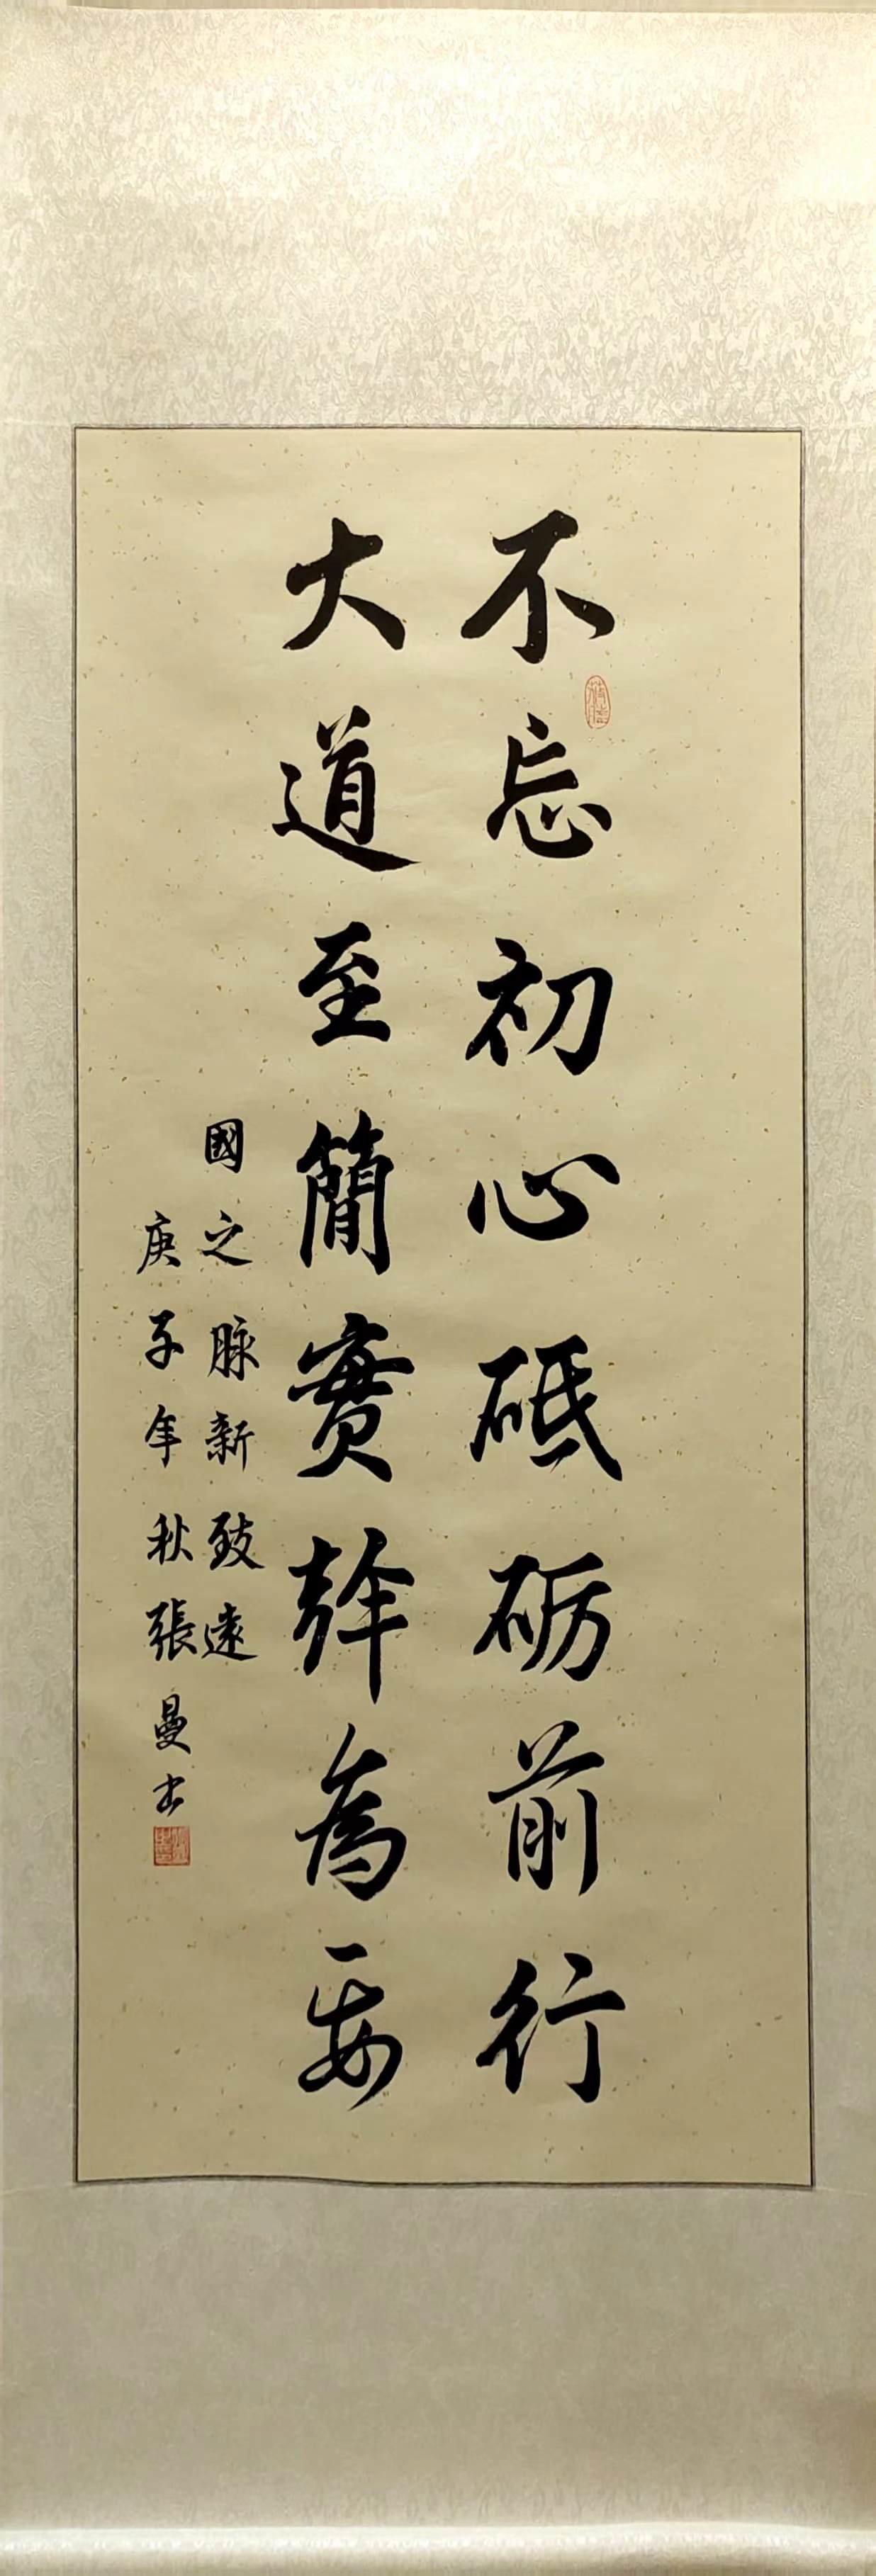 不忘初心砥砺前行
大道至簡實幹為要
國之脉新致遠
庚子年秋張曼书